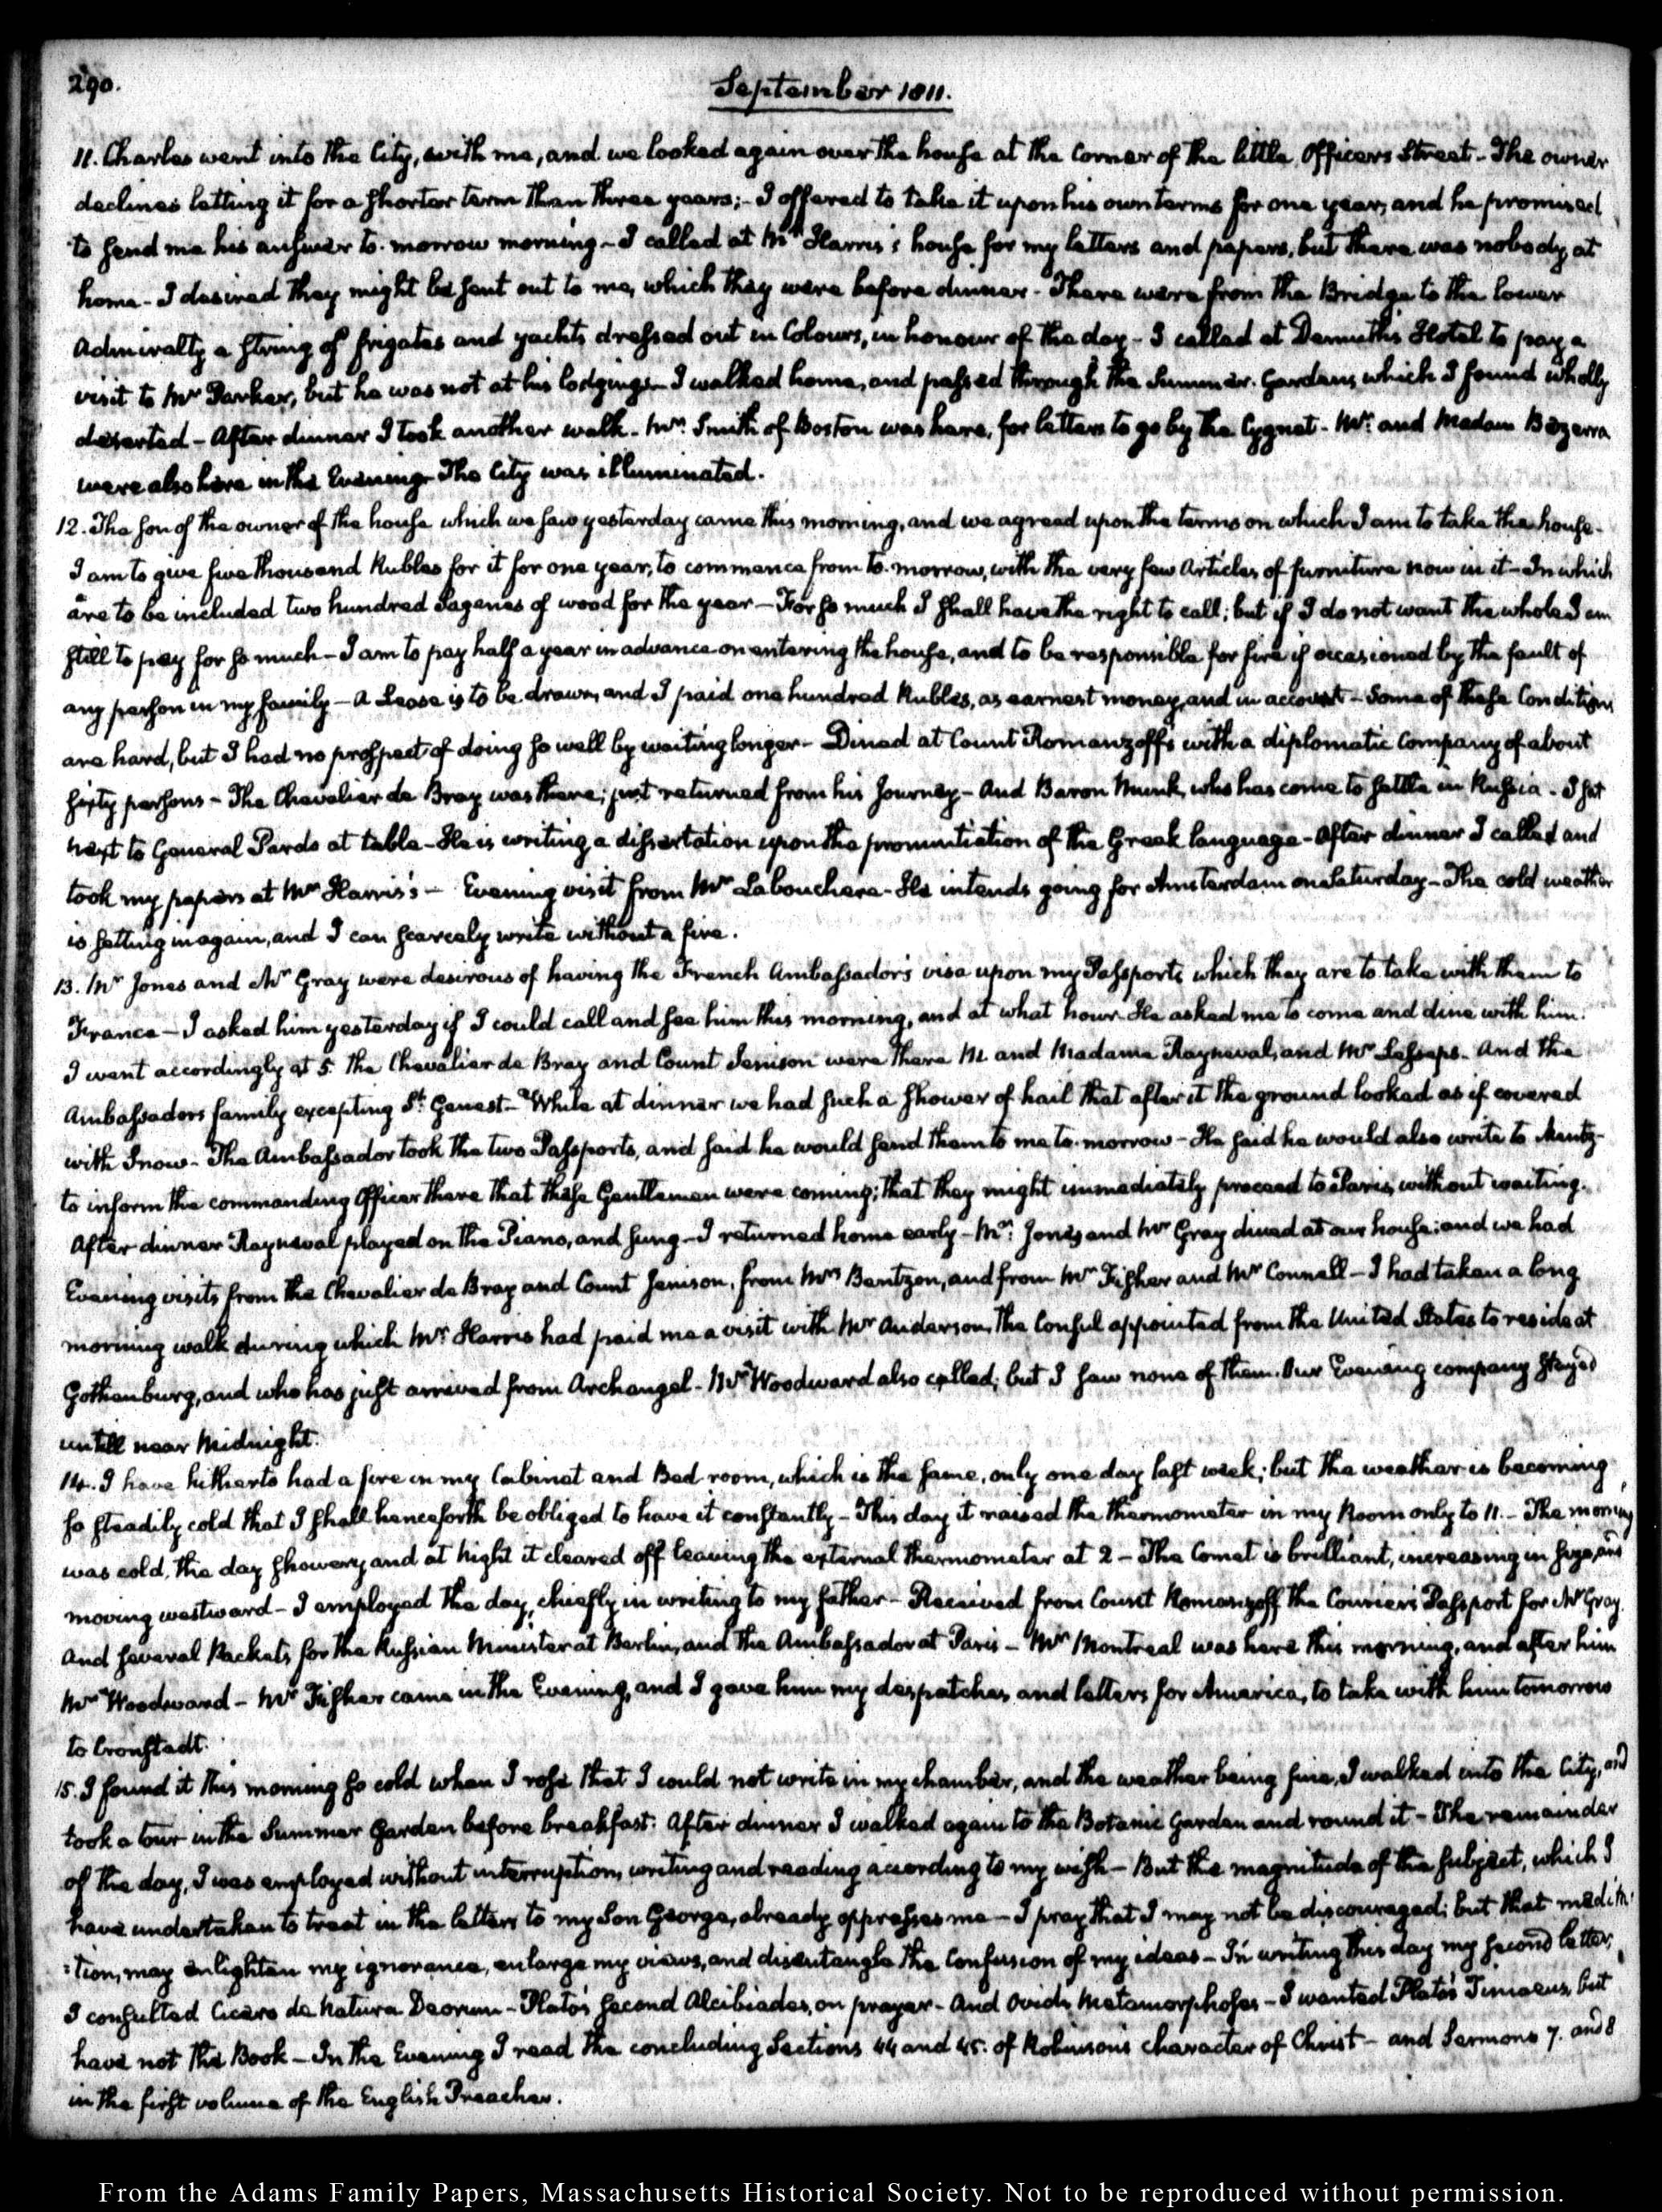 290.
September 1811.
11. Charles went into the City, with me, and we looked again over the house at the Corner of the little Officers Street - The owner
declines letting it for a shorter term than three years; - I offered to take it upon his own terms for one year, and he promised
to send me his answer to-morrow morning - I called at Mr. Harris's house for my letters and papers, but there was nobody at
home - I desired they might be sent out to me, which they were before dinner - There were from the Bridge to the lower
Admiralty a string of frigates and yachts dressed out in Colours, in honour of the day - I called at Demuth's Hotel to pay a
visit to Mr Parker, but he was not at his lodgings - I walked home, and passed through the Summer-Gardens, which I found wholly
deserted - After dinner I took another walk - Mr. Smith of Boston was here, for letters to go by the Cygnet - Mr. and Madam Bezerra
were also here in the Evening - The City was illuminated.
12. The son of the owner of the house which we saw yesterday came this morning, and we agreed upon the terms on which I am to take the house -
I am to give five thousand Rubles for it for one year, to commence from to-morrow, with the very few Articles of furniture now in it - In which
are to be included two hundred Sagenes of wood for the year - For so much I shall have the right to call; but if I do not want the whole I am
still to pay for so much - I am to pay half a year in advance on entering the house, and to be responsible for fire if occasioned by the fault of
any person in my family - A Lease is to be drawn, and I paid one hundred Rubles, as earnest money, and in account - Some of these Conditions
are hard, but I had no prospect of doing so well by waiting longer - Dined at Count Romanzoff's with a diplomatic Company of about
sixty persons - The Chevalier de Bray was there; just returned from his Journey - And Baron Munk, who has come to settle in Russia - I sat
next to General Pardo at table - He is writing a dissertation upon the pronuntiation of the Greek language - After dinner I called and
took my papers at Mr Harris's - Evening visit from Mr Labouchere - He intends going for Amsterdam on Saturday - The cold weather
is setting in again, and I can scarcely write without a fire.
13. Mr Jones and Mr Gray were desirous of having the French Ambassador's visa upon my Passports which they are to take with them to
France - I asked him yesterday if I could call and see him this morning, and at what hour. He asked me to come and dine with him.
I went accordingly at 5. The Chevalier de Bray and Count Jenison were there M. and Madame Rayneval, and Mr Lesseps - And the
Ambassadors family excepting St. Genest - While at dinner we had such a shower of hail that after it the ground looked as if covered
with Snow - The Ambassador took the two Passports, and said he would send them to me to-morrow - He said he would also write to Mentz -
to inform the commanding Officer there that these Gentlemen were coming; that they might immediately proceed to Paris, without waiting.
After dinner Rayneval played on the Piano, and sung - I returned home early - Mr. Jones and Mr Gray dined at our house; and we had
Evening visits from the Chevalier de Bray and Count Jenison, from Mrs Bentzon, and from Mr Fisher and Mr Connell - I had taken a long
morning walk during which Mr Harris had paid me a visit with Mr Anderson, the Consul appointed from the United States to reside at
Gothenburg, and who has just arrived from Archangel - Mr Woodward also called; but I saw none of them. Our Evening company stayed
untill near Midnight.
14. I have hitherto had a fire in my Cabinet and Bed room, which is the same, only one day last week; but the weather is becoming
so steadily cold that I shall henceforth be obliged to have it constantly - This day it raised the thermometer in my Room only to 11. - The morning
was cold, the day showery, and at Night it cleared off leaving the external thermometer at 2 - The Comet is brilliant, increasing in size, and
moving westward - I employed the day, chiefly in writing to my father - Received from Count Romanzoff the Courier's Passport for Mr Gray
And several Packets for the Russian Minister at Berlin, and the Ambassador at Paris - Mr Montreal was here this morning, and after him
Mr Woodward - Mr Fisher came in the Evening, and I gave him my despatches and letters for America, to take with him tomorrow
to Cronstadt.
15. I found it this morning so cold when I rose that I could not write in my chamber, and the weather being fine, I walked into the City, and
took a tour in the Summer Garden before breakfast. After dinner I walked again to the Botanic Garden and round it - The remainder
of the day, I was employed without interruption, writing and reading according to my wish - But the magnitude of the subject, which I
have undertaken to treat in the letters to my Son George, already oppresses me - I pray that I may not be discouraged; but that medita-
:tion, may enlighten my ignorance, enlarge my views, and disentangle the Confusion of my ideas - In writing this day my second letter,
I consulted Cicero de Natura Deorum - Plato's second Alcibiades, on prayer - And Ovids Metamorphoses - I wanted Plato's Timaeus, but
have not the Book - In the Evening I read the concluding Sections 44 and 45. of Robinson's character of Christ - and Sermons 7. and 8
in the first volume of the English Preacher.
From the Adams Family Papers, Massachusetts Historical Society. Not to be reproduced without permission.